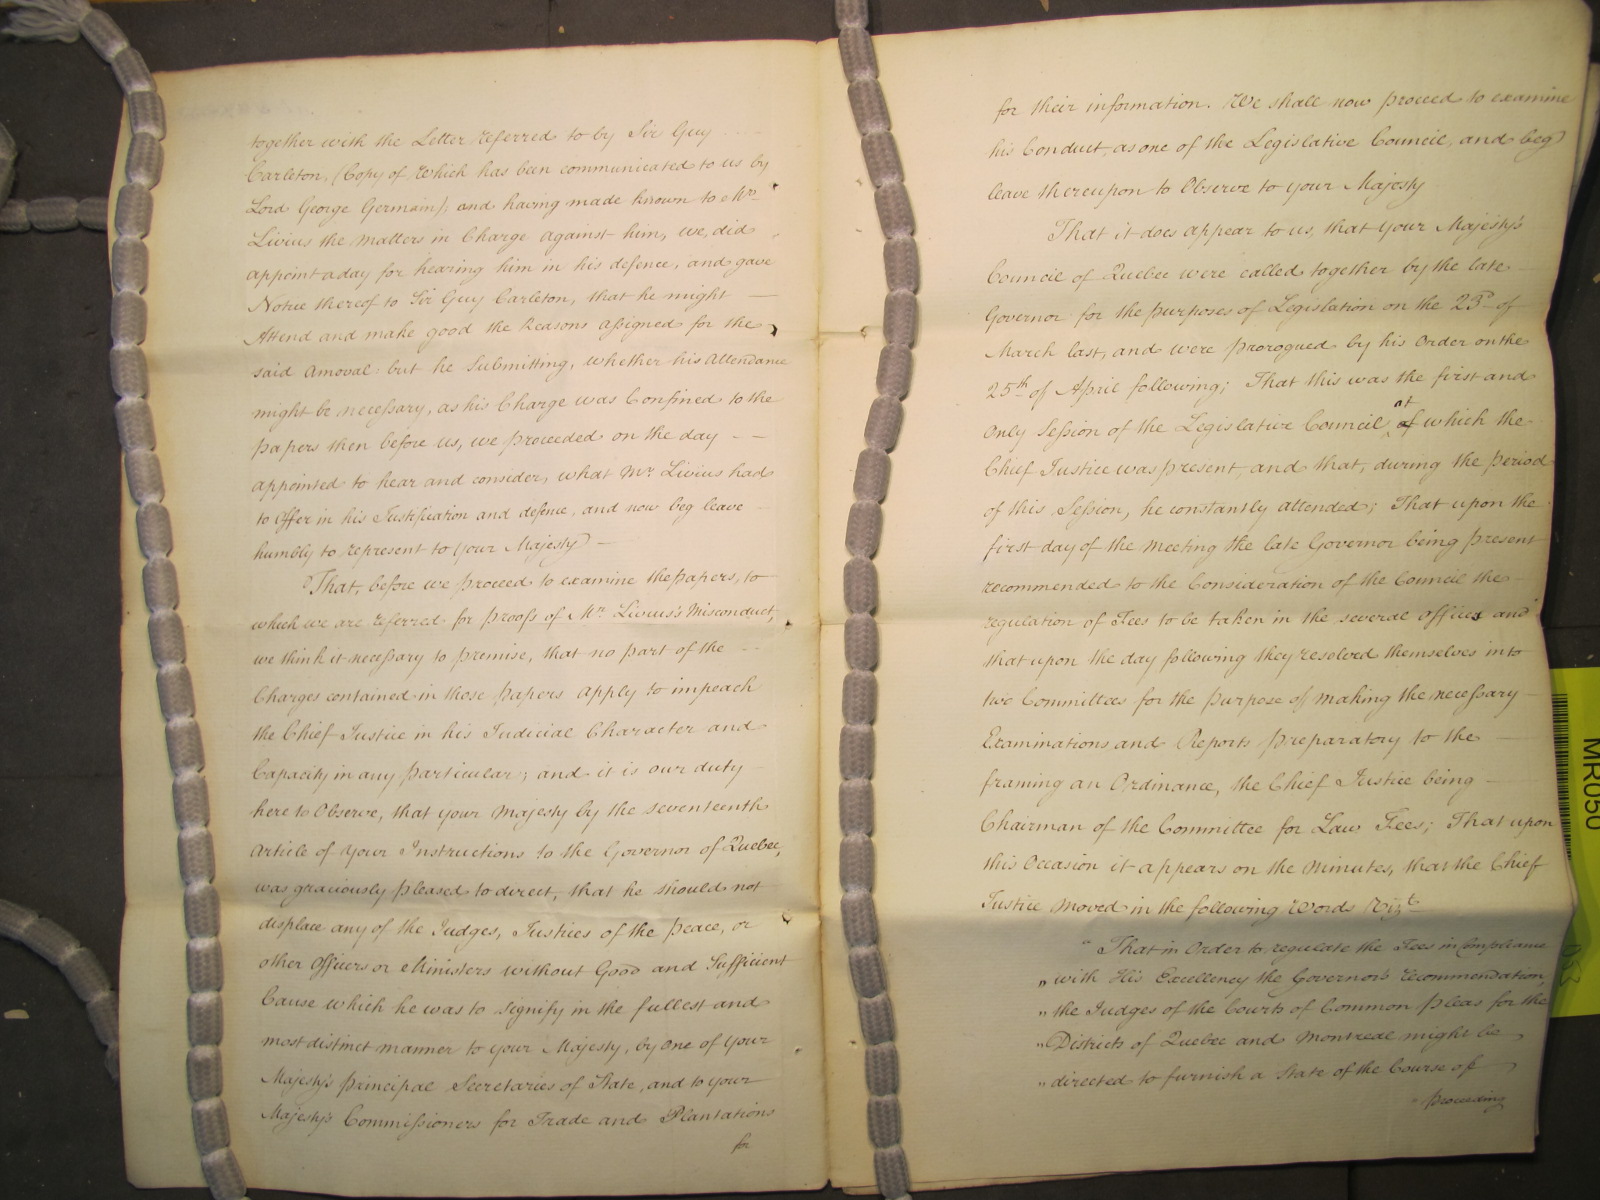 together with the Letter referred to by Sir Guy
Carleton, (Copy of which has been communicated to us by
Lord George Germain); and having made known to Mr.
Livius the matters in Charge against him, we did
appoint a day for hearing him in his defence, and gave
Notice thereof to Sir Guy Carleton, that he might —
Attend and make good the Reasons assigned for the
said Amoval: but he Submitting, whether his Attendance
might be necessary, as his Charge was Confined to the
papers then before us, we proceeded on the day - —
appointed to hear and consider, what Mr. Livius had
to Offer in his Justification and defence, and now beg leave
humbly to represent to your Majesty —
That, before we proceed to examine the papers, to
which we are referred for proofs of Mr. Livius's Misconduct,
we think it necessary to premise, that no part of the
Charges contained in those papers apply to impeach
the Chief Justice in his Judicial Character and
Capacity in any particular; and it is our duty
here to Observe, that your Majesty by the seventeenth
Article of your Instructions to the Governor of Quebec,
was graciously pleased to direct, that he should not
displace any of the Judges, Justices of the peace, or
other Officers or Ministers without Good and Sufficient
Cause which he was to signify in the fullest and
most distinct manner to your Majesty, by one of your
Majesty's principal Secretaries of State, and to your
Majesty's Commissioners for Trade and Plantations
for
for their information. We shall now proceed to examine
his Conduct, as one of the Legislative Council, and beg
leave thereupon to Observe to your Majesty
That it does appear to us, that your Majesty's
Council of Quebec were called together by the late
Governor for the purposes of Legislation on the 23d of
March last, and were prorogued by his Order on the
25th of April following; That this was the first and
only Session of the Legislative Council at of which the
Chief Justice was present, and that, during the period
of this Session, he constantly attended; That upon the
first day of the meeting the late Governor being present
recommended to the Consideration of the Council the
regulation of Fees to be taken in the several offices and
that upon the day following they resolved themselves into
two Committees for the purpose of making the necessary
Examinations and Reports preparatory to the —
framing an Ordinance, the Chief Justice being —
Chairman of the Committee for Law Fees; That upon
this Occasion it appears on the minutes, that the Chief
Justice moved in the following Words Vizt
" That in Order to regulate the Fees in Compliance
" with His Excellency the Governor's recommendation,
" the Judges of the Courts of Common pleas for the
" Districts of Quebec and Montreal might be
" directed to furnish a State of the Course of
" proceeding
MR050